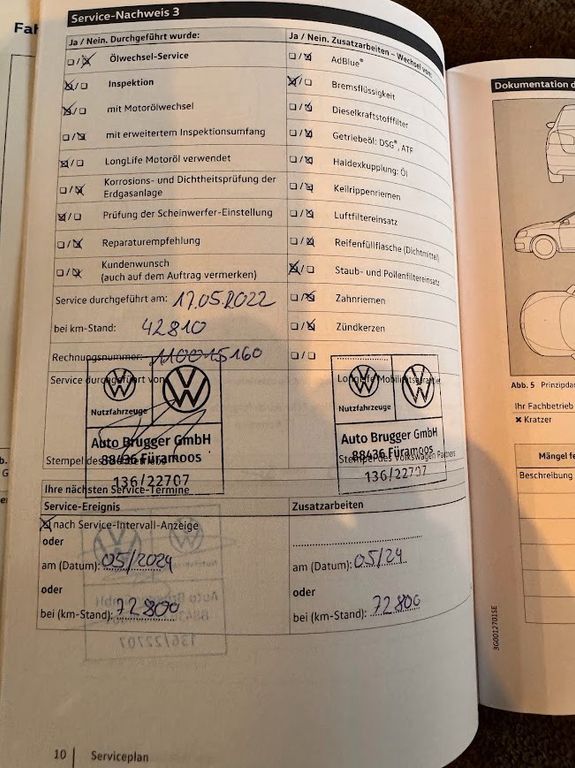 Fah
Service-Nachweis 3
Ja / Nein. Durchgeführt wurde:
Ölwechsel-Service
Inspektion
mit Motorölwechsel
mit erweitertem Inspektionsumfang
LongLife Motoröl verwendet
Korrosions- und Dichtheitsprüfung der
Erdgasanlage
Prüfung der Scheinwerfer-Einstellung
Reparaturempfehlung
Kundenwunsch
(auch auf dem Auftrag vermerken)
Service durchgeführt am: 17.05.2022
bei km-Stand: 42810
Rechnungsnummer: 110015160
Service durchgeführt von:
Nutzfahrzeuge
Auto Brugger GmbH
88436 Füramoos
Stempel des
136/22707
Ja / Nein. Zusatzarbeiten – Wechsel von:
AdBlue®
Bremsflüssigkeit
Dieselkraftstofffilter
Getriebeöl: DSG®, ATF
Haldexkupplung: Öl
Keilrippenriemen
Luftfiltereinsatz
Reifenfüllflasche (Dichtmittel)
Staub- und Pollenfiltereinsatz
Zahnriemen
Zündkerzen
LongLife Mobilitätsgarantie
Nutzfahrzeuge
Auto Brugger GmbH
88436 Füramoos
Stempel des Volkswagen Partners
136/22707
Ihre nächsten Service-Termine
Service-Ereignis
nach Service-Intervall-Anzeige
oder
am (Datum): 05/2024
oder
bei (km-Stand): 72800
Zusatzarbeiten
am (Datum): 05/24
oder
bei (km-Stand): 72800
10 | Serviceplan
Dokumentation d
Abb. 5 Prinzipdar
Ihr Fachbetrieb
× Kratzer
Mängel fe
Beschreibung
3G0012701SE